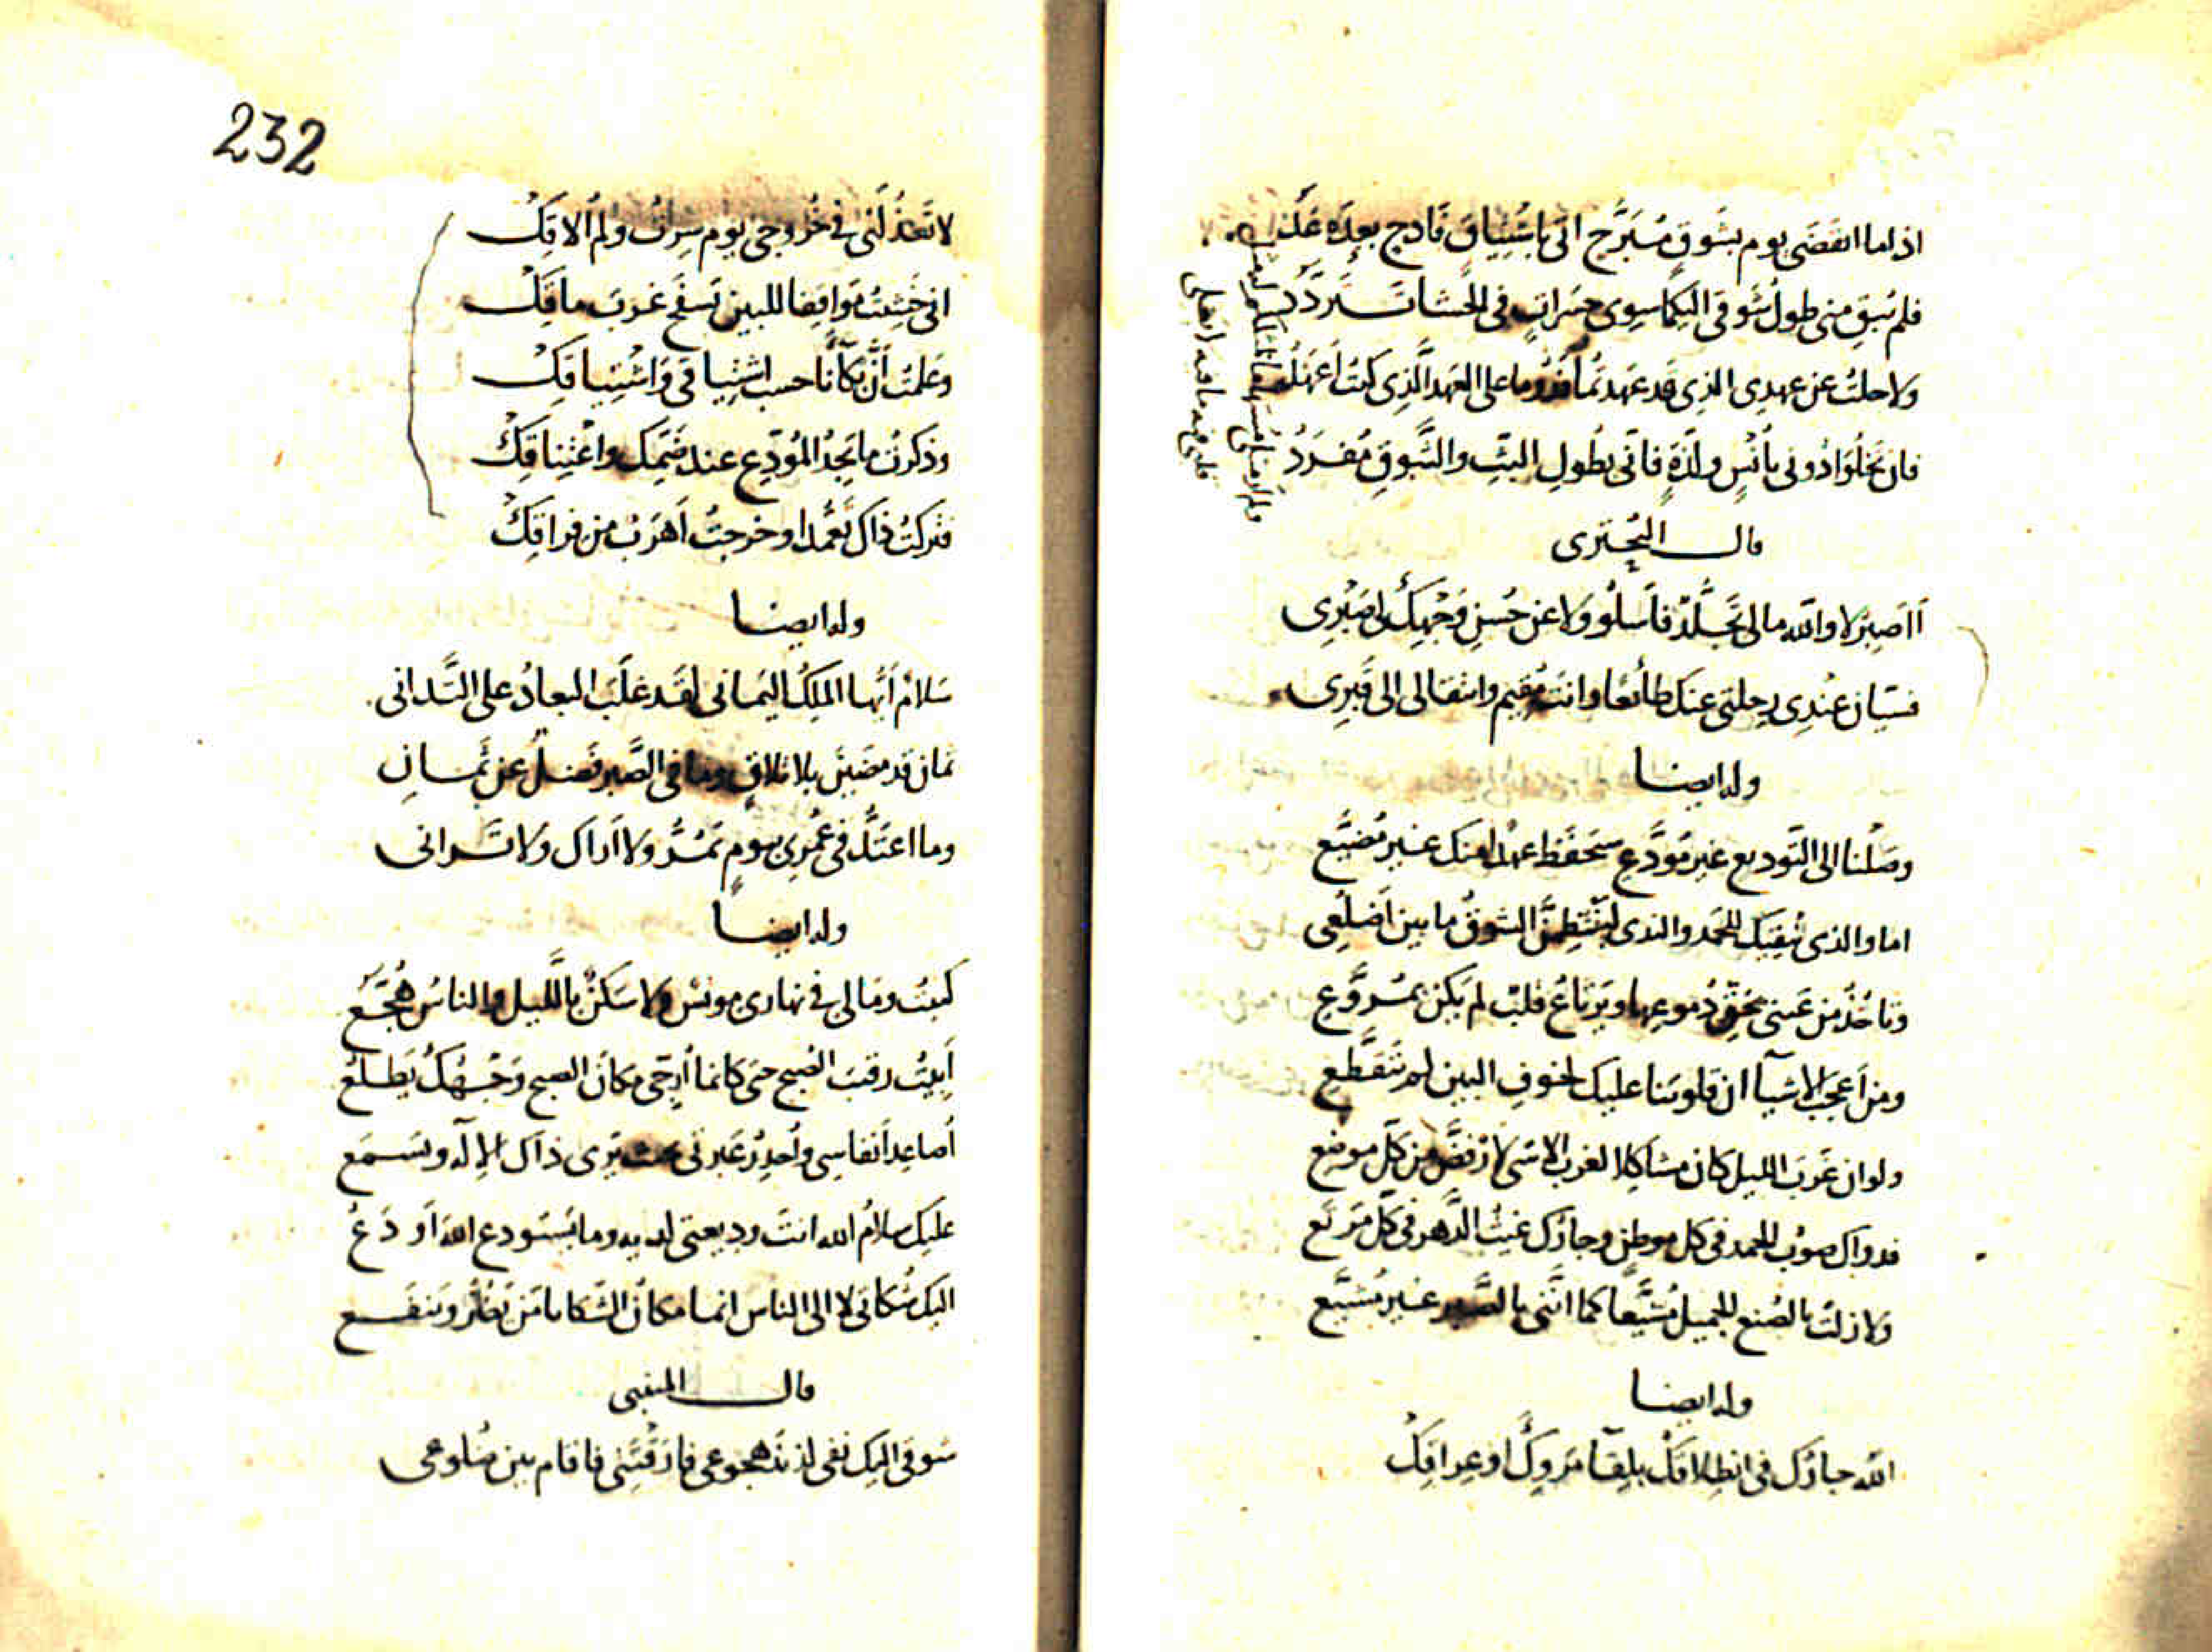 اذا ما انقضى يوم بشوق مُبَرّح اتى باشتياق فادح بعده غد
فلم تبق منى طول شوقى اليكما سوى حسرات فى الحشا تتردد
ولا حلت عن عهدى الذى قد عهدتما فدوما على العهد الذى كنت اعهد
فان تخلوا دونى بأنس ولذة فانى بطول البث والشوق مفرد
قال البحترى
أاصبر لا والله مالى تجلّد فأسلو ولا عن حسن وجهك لى صبرى
فسيان عندى رحلتى عنك طائعا وانت مقيم وانتقالى الى قبرى
وله ايضا
وصلنا الى التوديع غير مودع سنحفظ عهدا منك غير مضيع
اما والذى يبقيك للحمد والندى لينتظمن الشوق ما بين اضلعى
وتأخذ من عينى بحق دموعها ويرتاع قلب لم يكن بمروع
ومن أعجب الاشيآ ان قلوبنا عليك لخوف البين لم تتقطع
ولو ان غرب الليل كان مشاكلا لغرب الاسى لارفض من كل موضع
فدواك صوب الحمد فى كل موطن وجادك غيث الدهر فى كل مربع
ولا زلت بالصنع الجميل مشيعا كما اننى بالصبر غير مشيع
وله ايضا
الله جارك فى انطلاقك بلقآ مروك او عراقك
232
لا تعذلنى فى خروجى يوم سرت ولم الاقك
انى خشيت مواقفا للبين تسفح غرب ماقك
وعلمت أن بكآنا حسب اشتياقى واشتياقك
وذكرت ما يجد المودع عند ضمك واعتناقك
فتركت ذاك تعمدا وخرجت أهرب من فراقك
وله ايضا
سلام أيها الملك اليمانى لقد غلب البعاد على التدانى
ثمان قد مضين بلا تلاق وما فى الصبر فضل عن ثمان
وما اعتد فى عمرى بيوم تمر ولا اراك ولا ترانى
وله ايضا
كميت ومالى فى نهارى مونس ولا سكن بالليل والناس هجع
أبيت رقيب الصبح حتى كانما أرجى مكان الصبح وجهك يطلع
أصاعد أنفاسى وأحدر عبرتى بحيث يرى ذاك الإله ويسمع
عليك سلام الله انت وديعتى لديه وما يستودع الله أودع
اليك شكاتى لا الى الناس انما مكان الشكايا من يضر وينفع
قال المتنبى
شوقى اليك نفى لذيذ هجوعى فارقتنى فاقام بين ضلوعى